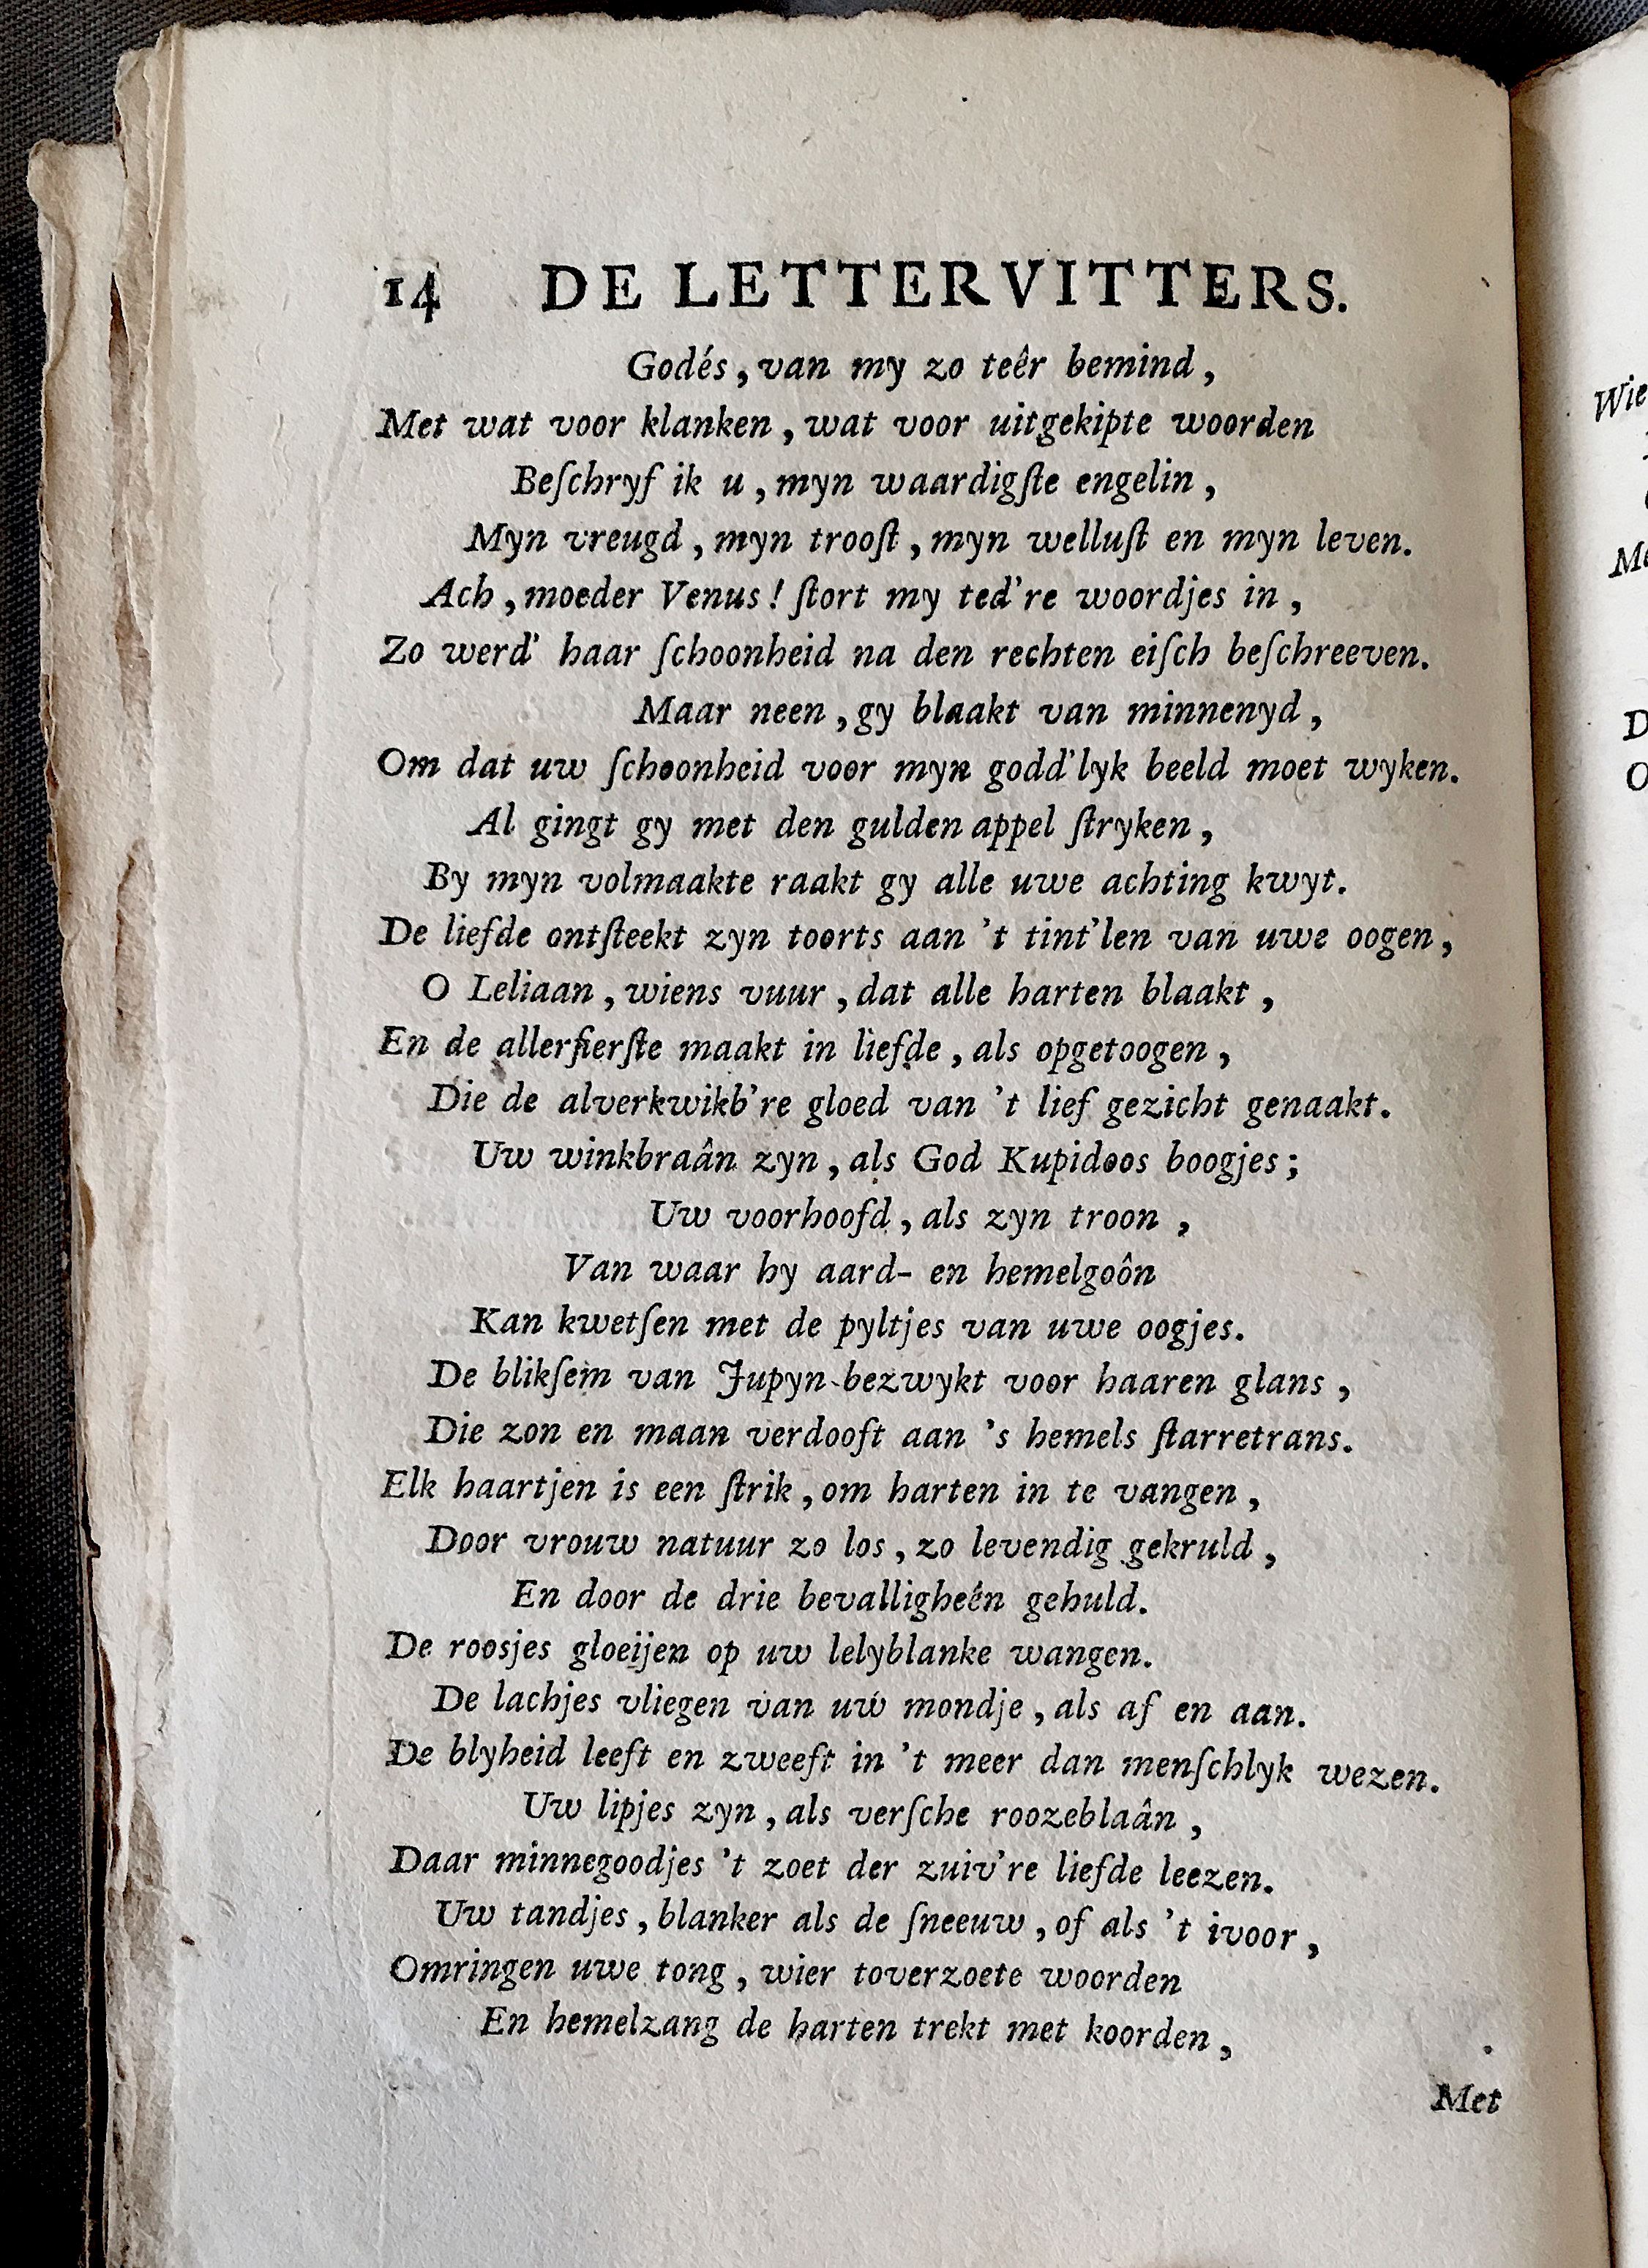 14 DE LETTERVITTERS.
Godés, van my zo teêr bemind,
Met wat voor klanken, wat voor uitgekipte woorden
Beſchryf ik u, myn waardigſte engelin,
Myn vreugd, myn trooſt, myn welluſt en myn leven.
Ach, moeder Venus! ſtort my ted're woordjes in,
Zo werd' haar ſchoonheid na den rechten eiſch beſchreeven.
Maar neen, gy blaakt van minnenyd,
Om dat uw ſchoonheid voor myn godd'lyk beeld moet wyken.
Al gingt gy met den gulden appel ſtryken,
By myn volmaakte raakt gy alle uwe achting kwyt.
De liefde ontſteekt zyn toorts aan 't tint'len van uwe oogen,
O Leliaan, wiens vuur, dat alle harten blaakt,
En de allerfierſte maakt in liefde, als opgetoogen,
Die de alverkwikb're gloed van 't lief gezicht genaakt.
Uw winkbraân zyn, als God Kupidoos boogjes;
Uw voorhoofd, als zyn troon,
Van waar hy aard- en hemelgoôn
Kan kwetſen met de pyltjes van uwe oogjes.
De blikſem van Jupyn bezwykt voor haaren glans,
Die zon en maan verdooft aan 's hemels ſtarretrans.
Elk haartjen is een ſtrik, om harten in te vangen,
Door vrouw natuur zo los, zo levendig gekruld,
En door de drie bevalligheên gehuld.
De roosjes gloeijen op uw lelyblanke wangen.
De lachjes vliegen van uw mondje, als af en aan.
De blyheid leeft en zweeft in 't meer dan menſchlyk wezen.
Uw lipjes zyn, als verſche roozeblaân,
Daar minnegoodjes 't zoet der zuiv're liefde leezen.
Uw tandjes, blanker als de ſneeuw, of als 't ivoor,
Omringen uwe tong, wier toverzoete woorden
En hemelzang de harten trekt met koorden,
Met
Wie